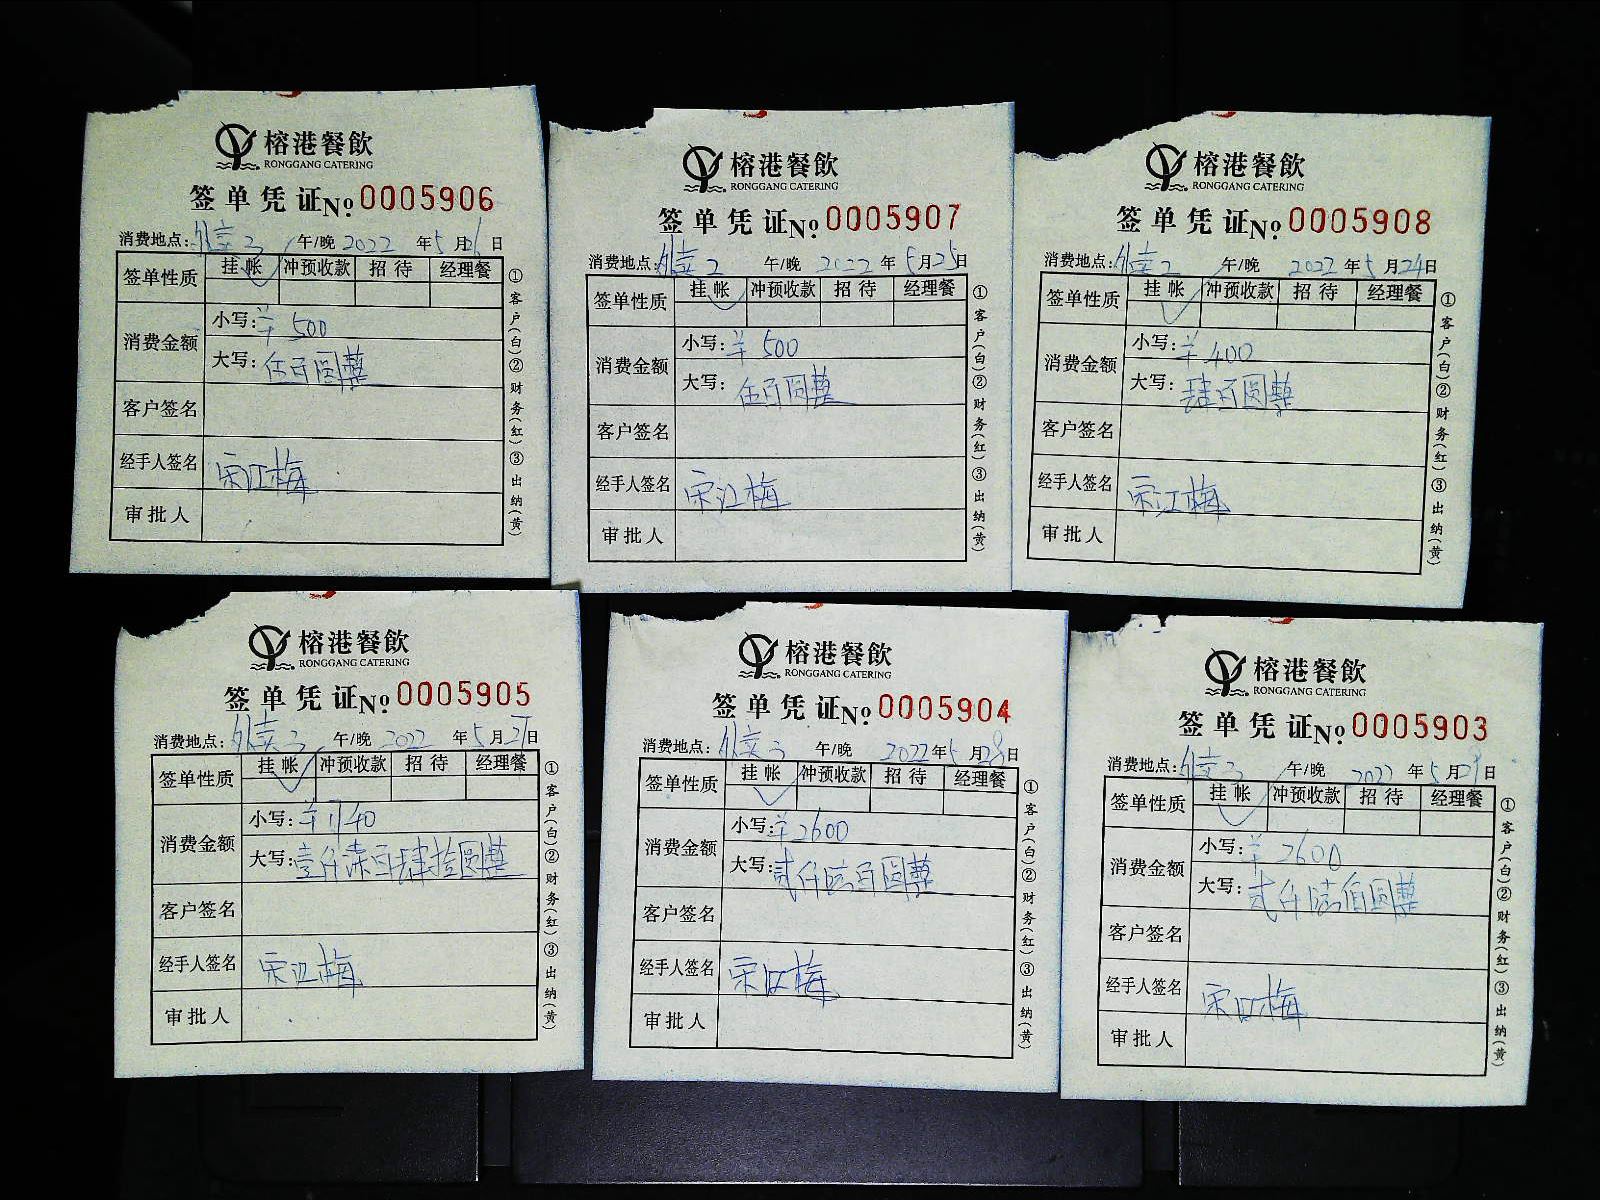 榕港餐飲
RONGGANG CATERING
签单凭证 №0005906
消费地点: 外卖3 午/晚 2022 年 5 月 26 日
签单性质 挂帐 冲预收款 招待 经理餐
消费金额
小写: ¥ 500
大写: 伍百圆整
客户签名
经手人签名 宋江梅
审批人
①客户(白)②财务(红)③出纳(黄)
榕港餐飲
RONGGANG CATERING
签单凭证 №0005907
消费地点: 外卖2 午/晚 2022 年 5 月 25 日
签单性质 挂帐 冲预收款 招待 经理餐
消费金额
小写: ¥ 500
大写: 伍百圆整
客户签名
经手人签名 宋江梅
审批人
①客户(白)②财务(红)③出纳(黄)
榕港餐飲
RONGGANG CATERING
签单凭证 №0005908
消费地点: 外卖2 午/晚 2022 年 5 月 24 日
签单性质 挂帐 冲预收款 招待 经理餐
消费金额
小写: ¥ 400
大写: 肆百圆整
客户签名
经手人签名 宋江梅
审批人
①客户(白)②财务(红)③出纳(黄)
榕港餐飲
RONGGANG CATERING
签单凭证 №0005905
消费地点: 外卖3 午/晚 2022 年 5 月 27 日
签单性质 挂帐 冲预收款 招待 经理餐
消费金额
小写: ¥ 1740
大写: 壹仟柒百肆拾圆整
客户签名
经手人签名 宋江梅
审批人
①客户(白)②财务(红)③出纳(黄)
榕港餐飲
RONGGANG CATERING
签单凭证 №0005904
消费地点: 外卖3 午/晚 2022 年 5 月 28 日
签单性质 挂帐 冲预收款 招待 经理餐
消费金额
小写: ¥ 2600
大写: 贰仟陆百圆整
客户签名
经手人签名 宋江梅
审批人
①客户(白)②财务(红)③出纳(黄)
榕港餐飲
RONGGANG CATERING
签单凭证 №0005903
消费地点: 外卖3 午/晚 2022 年 5 月 29 日
签单性质 挂帐 冲预收款 招待 经理餐
消费金额
小写: ¥ 2600
大写: 贰仟陆佰圆整
客户签名
经手人签名 宋江梅
审批人
①客户(白)②财务(红)③出纳(黄)